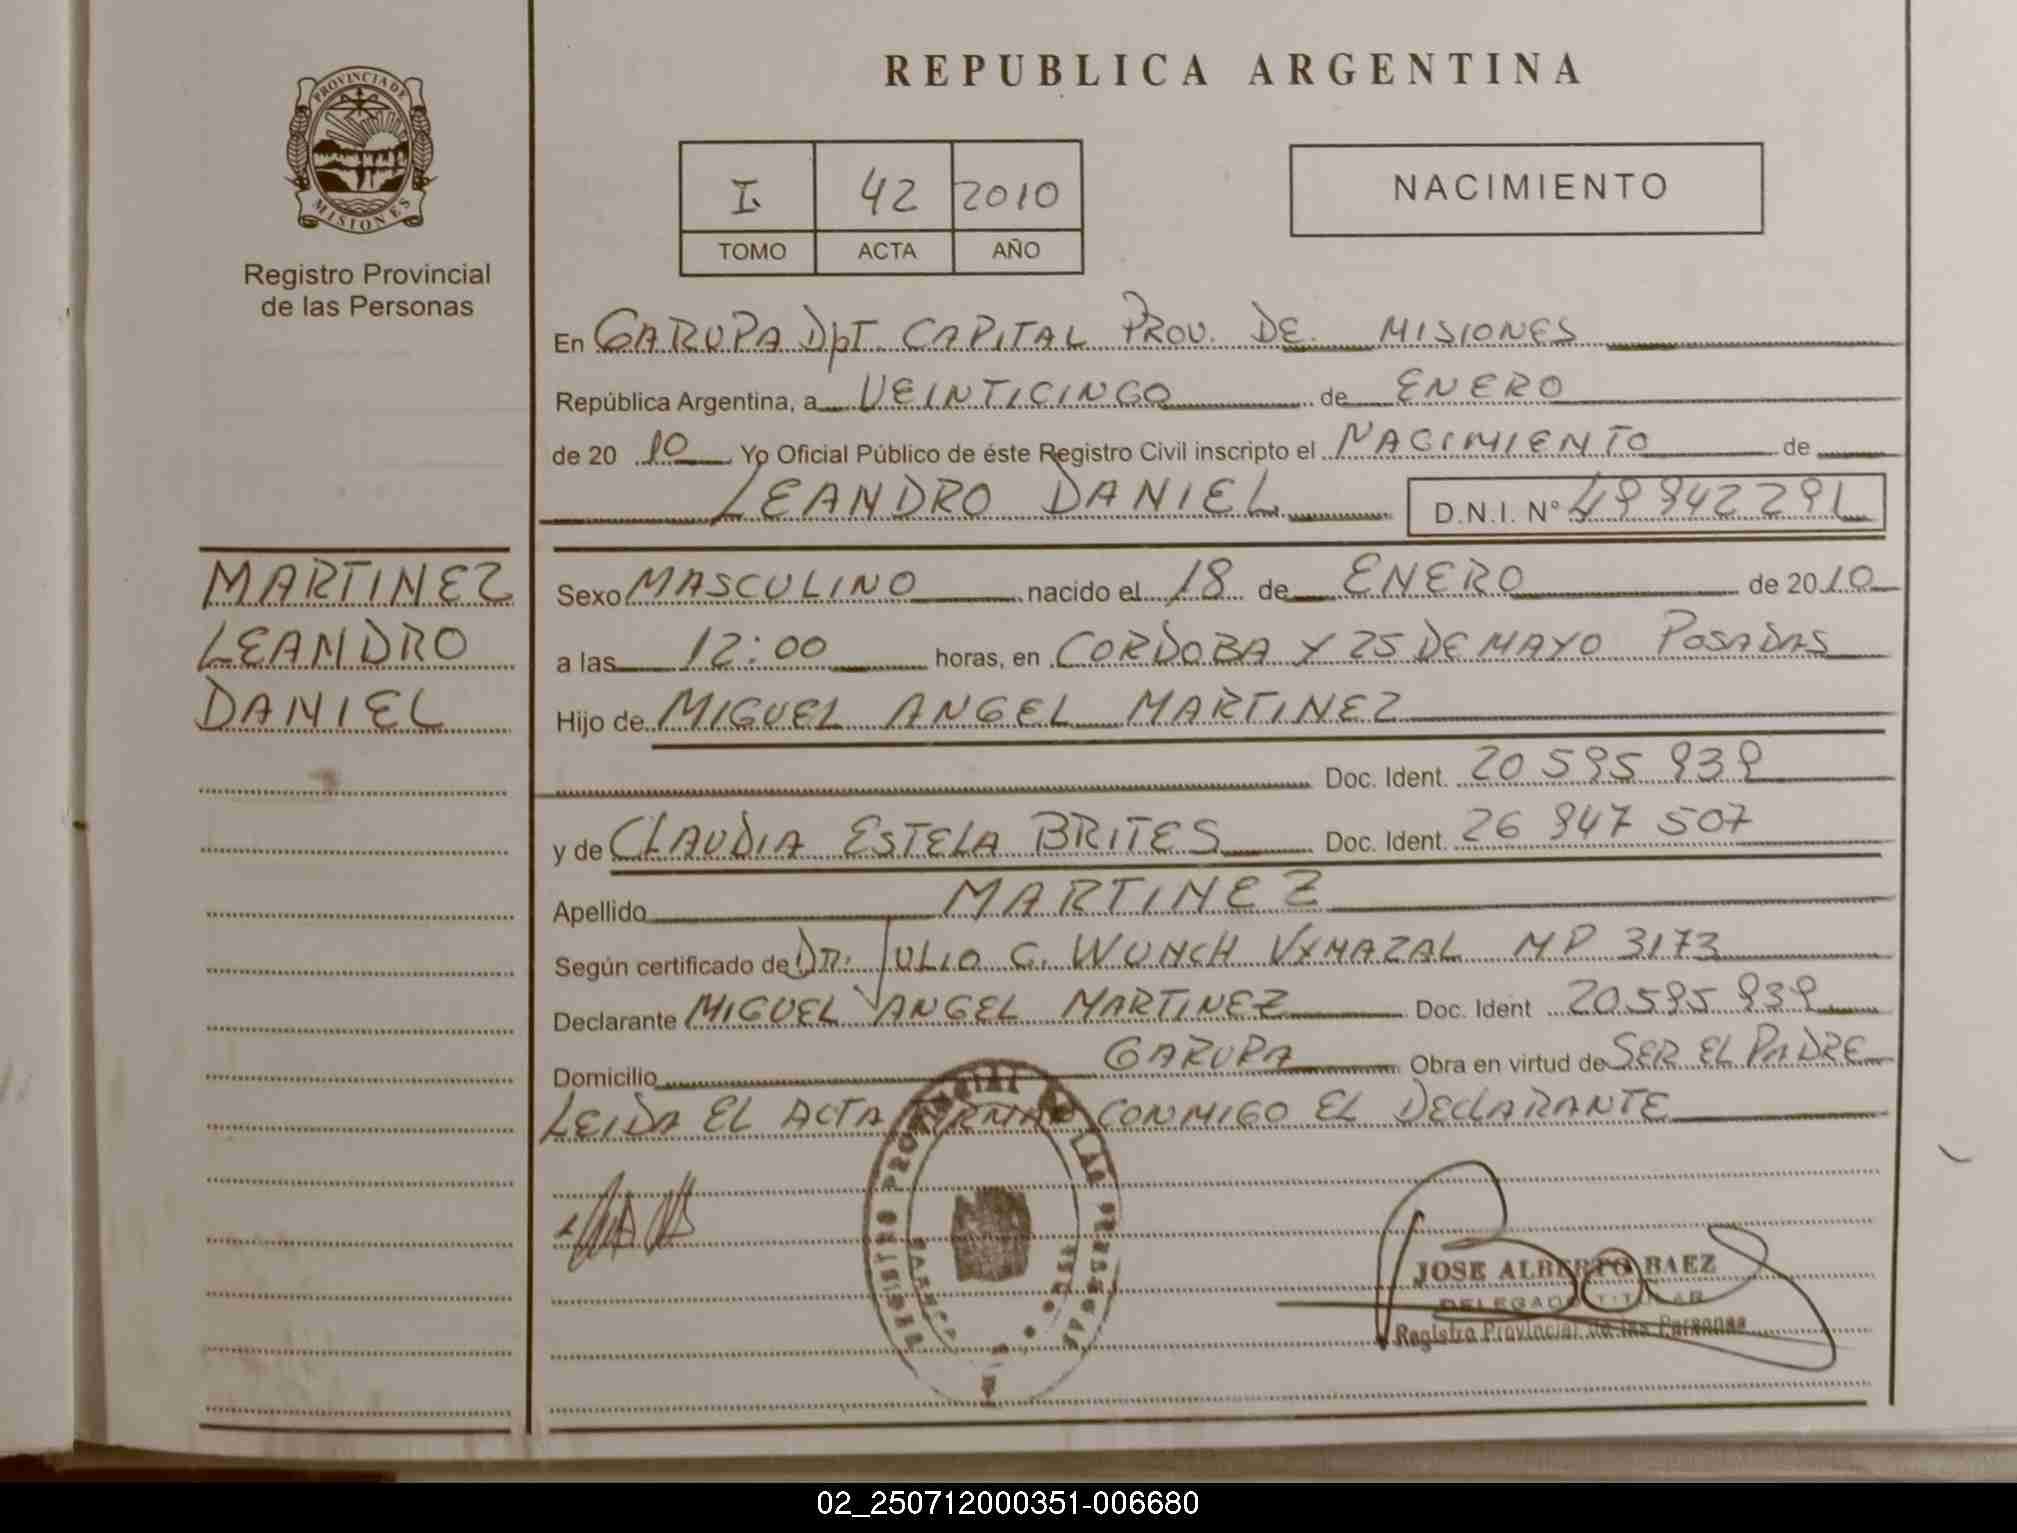 PROVINCIA DE
MISIONES
Registro Provincial
de las Personas
MARTINEZ
LEANDRO
DANIEL
REPUBLICA ARGENTINA
I. 42 2010
TOMO ACTA AÑO
NACIMIENTO
En GARUPA DpT. CAPITAL PROV. DE MISIONES
República Argentina, a VEINTICINCO de ENERO
de 20 10 Yo Oficial Público de éste Registro Civil inscripto el NACIMIENTO de
LEANDRO DANIEL D.N.I. Nº
Sexo MASCULINO nacido el 18 de ENERO de 2010
a las 12:00 horas, en CORDOBA Y 25 DE MAYO POSADAS
Hijo de MIGUEL ANGEL MARTINEZ
Doc. Ident. 20 595
y de CLAUDIA ESTELA BRITES Doc. Ident. 26 947 507
Apellido MARTINEZ
Según certificado de DR. JULIO C. WUNCH VYMAZAL MP 3173
Declarante MIGUEL ANGEL MARTINEZ Doc. Ident 20.595
Domicilio GARUPA Obra en virtud de SER EL PADRE
LEIDA EL ACTA FIRMAN CONMIGO EL DECLARANTE
JOSE ALBERTO BAEZ
DELEGADO TITULAR
Registro Provincial de las Personas
02_250712000351-006680